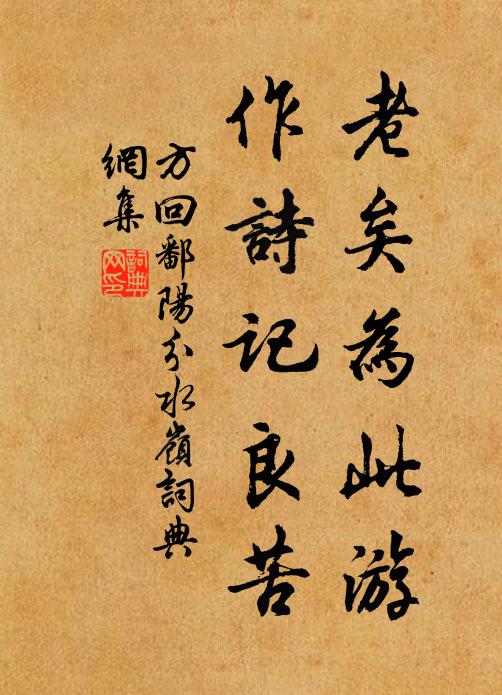 老矣為此游
作詩記良苦
方回鄱陽分水嶺詞典
網集
詞典網印